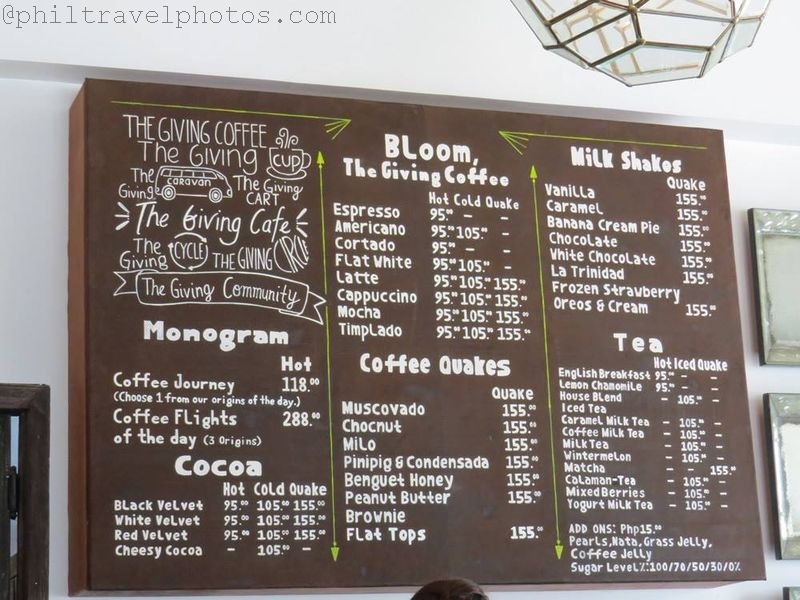 @philtravelphotos.com
THE GIVING COFFEE
The Giving CUP
The Giving caravan The Giving CART
The Giving Cafe
The Giving CYCLE THE GIVING CIRCLE
The Giving Community
Monogram
Hot
Coffee Journey 118.00
(Choose 1 from our origins of the day.)
Coffee Flights 288.00
of the day (3 Origins)
Cocoa
Hot Cold Quake
Black Velvet 95.00 105.00 155.00
White Velvet 95.00 105.00 155.00
Red Velvet 95.00 105.00 155.00
Cheesy Cocoa – 105.00 –
BLoom,
The Giving Coffee
Hot Cold Quake
Espresso 95.00 – –
Americano 95.00 105.00 –
Cortado 95.00 –
Flat White 95.00 105.00 –
Latte 95.00 105.00 155.00
Cappuccino 95.00 105.00 155.00
Mocha 95.00 105.00 155.00
Timplado 95.00 105.00 155.00
Coffee Quakes
Quake
Muscovado 155.00
Chocnut 155.00
Milo 155.00
Pinipig & Condensada 155.00
Benguet Honey 155.00
Peanut Butter 155.00
Brownie
Flat Tops 155.00
Milk Shakes
Quake
Vanilla 155.00
Caramel 155.00
Banana Cream Pie 155.00
Chocolate 155.00
White Chocolate 155.00
La Trinidad 155.00
Frozen Strawberry
Oreos & Cream 155.00
Tea
Hot Iced Quake
English Breakfast 95.00 – –
Lemon Chamomile 95.00 – –
House Blend – 105.00 –
Iced Tea
Caramel Milk Tea – 105.00 –
Coffee Milk Tea – 105.00 –
Milk Tea – 105.00 –
Wintermelon – 105.00 –
Matcha – 155.00
Calaman-Tea – 105.00 –
Mixed Berries – 105.00 –
Yogurt Milk Tea – 105.00 –
ADD ONS: Php15.00
Pearls, Nata, Grass Jelly,
Coffee Jelly
Sugar Level %: 100/70/50/30/0%